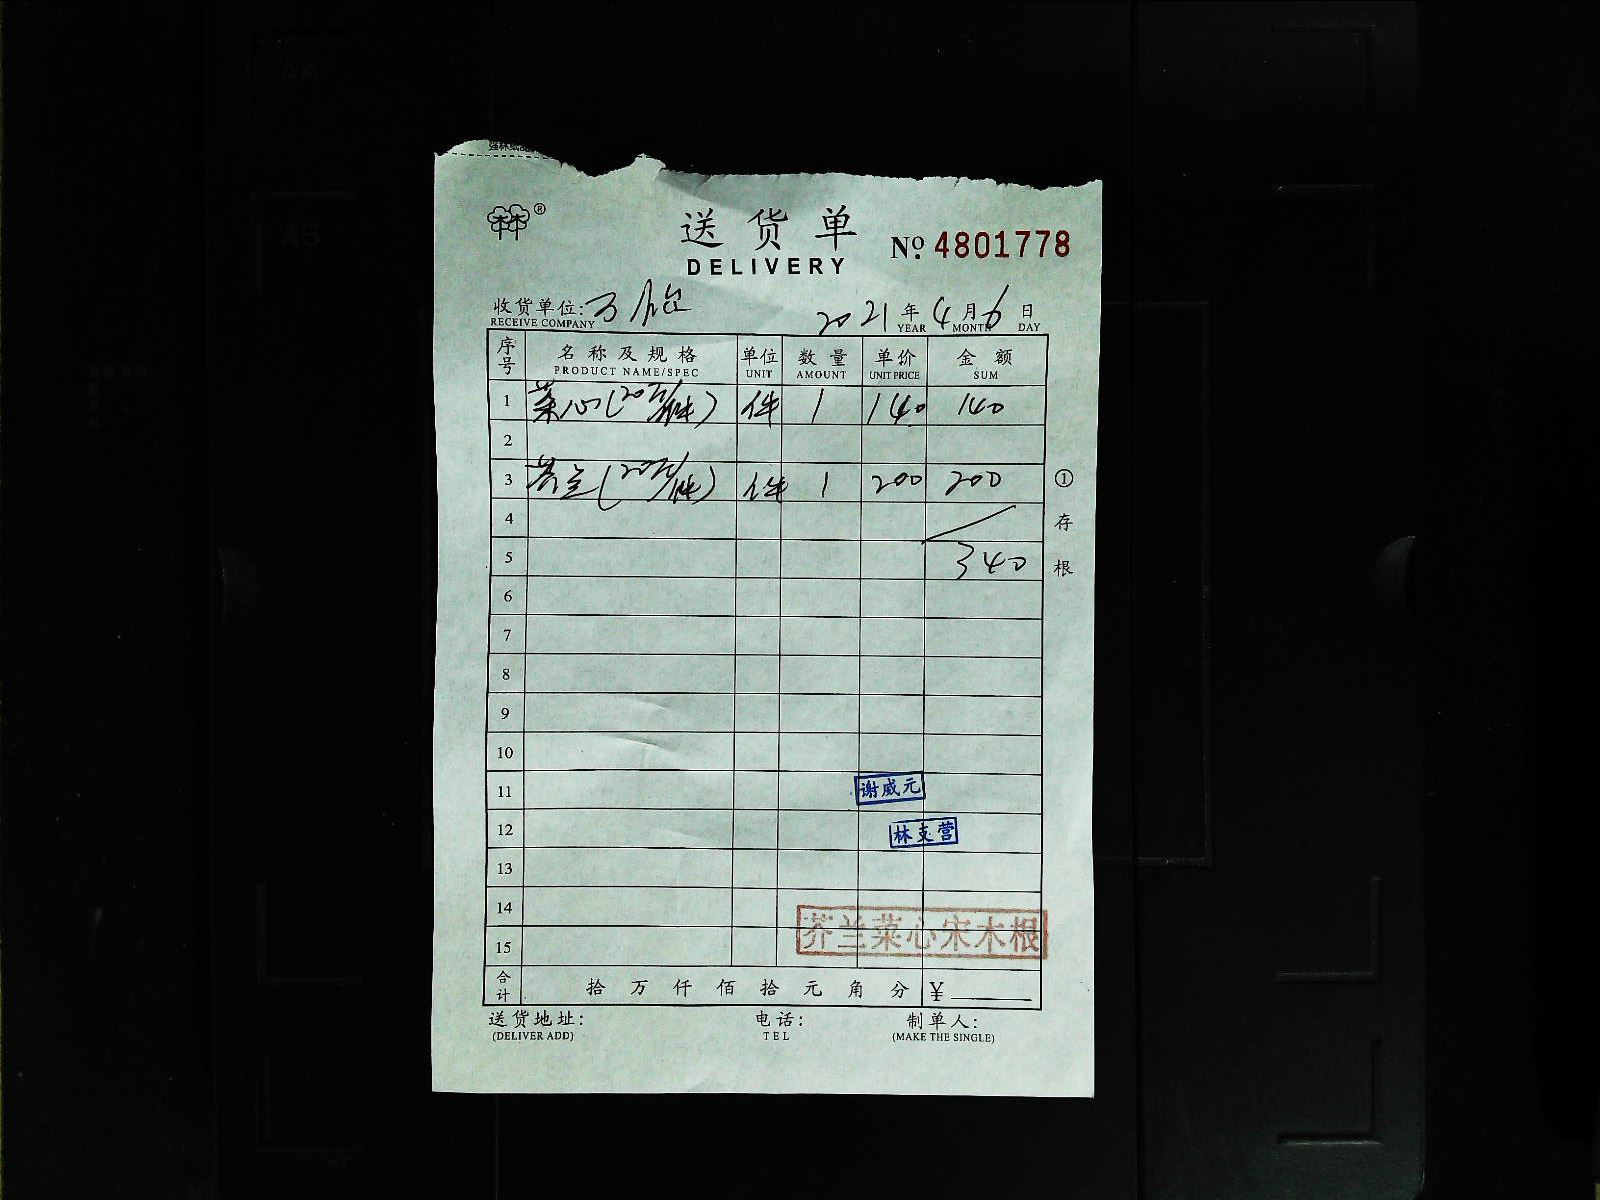 林®
送货单
DELIVERY
Nº 4801778
收货单位:
RECEIVE COMPANY
2021年4月6日
YEAR MONTH DAY
序号 名称及规格 单位 数量 单价 金额
PRODUCT NAME/SPEC UNIT AMOUNT UNIT PRICE SUM
1 菜心(20元/件) 件 1 140 140
2
3 芥兰(20元/件) 件 1 200 200
4
5 340
6
7
8
9
10
11 谢威元
12 林支营
13
14
15
芥兰菜心宋木根
合计 拾万仟佰拾元角分 ¥
送货地址: 电话: 制单人:
(DELIVER ADD) TEL (MAKE THE SINGLE)
①存根